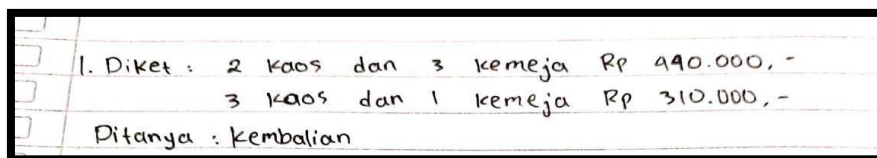 1. Diket : 2 kaos dan 3 kemeja Rp 440.000,-
3 kaos dan 1 kemeja Rp 310.000,-
Ditanya : kembalian